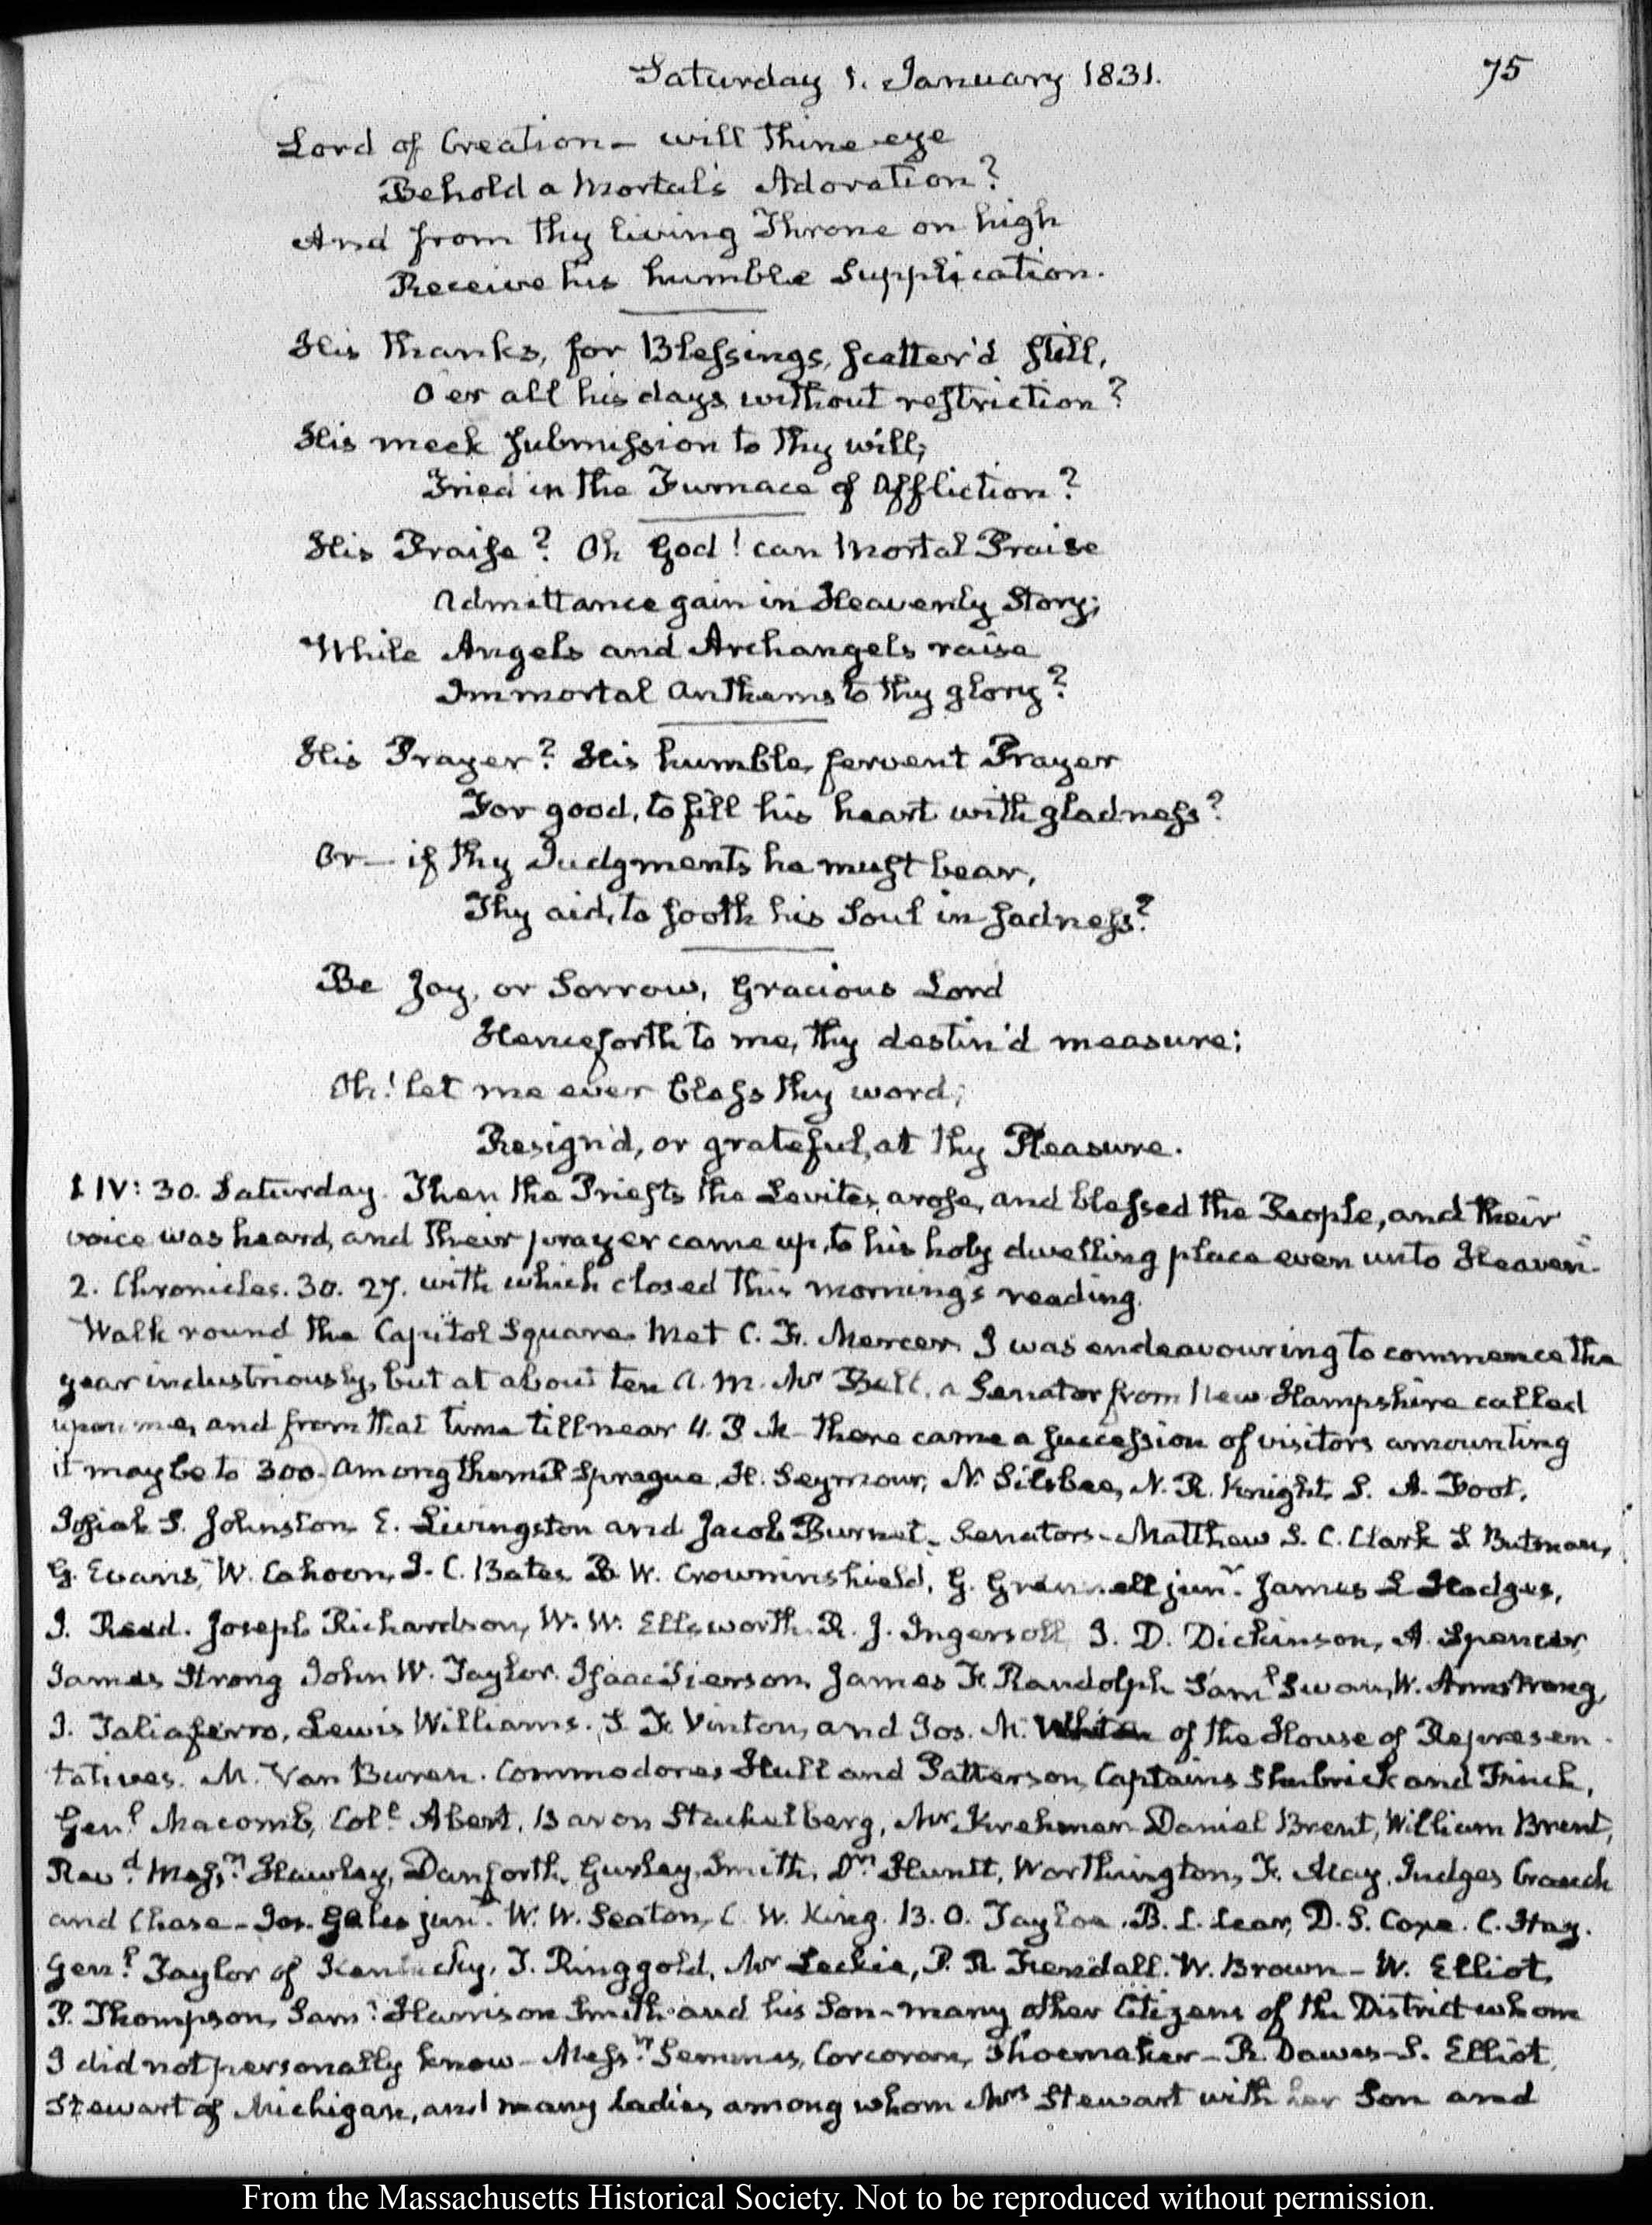 Saturday 1. January 1831.
75
Lord of Creation – will thine eye
Behold a Mortal's Adoration?
And from thy living Throne on high
Receive his humble Supplication.
His thanks, for Blessings, scatter'd still,
O'er all his days without restriction?
His meek submission to thy will;
Tried in the Furnace of Affliction?
His Praise? Oh God! can Mortal Praise
Admittance gain in Heavenly Story;
While Angels and Archangels raise
Immortal Anthems to thy glory?
His Prayer? His humble, fervent Prayer
For good, to fill his heart with gladness?
Or – if thy Judgments he must bear,
Thy aid, to sooth his Soul in sadness?
Be Joy, or Sorrow, Gracious Lord
Henceforth to me, thy destin'd measure;
Oh! let me ever bless thy word;
Resign'd, or grateful, at thy Pleasure.
1 IV: 30. Saturday. Then the Priests the Levites, arose, and blessed the People, and their
voice was heard, and their prayer came up, to his holy dwelling place even unto Heaven.
2. Chronicles. 30. 27. with which closed this morning's reading.
Walk round the Capitol Square. Met C. F. Mercer. I was endeavouring to commence the
year industriously, but at about ten A.M. Mr Bell, a Senator from New Hampshire called
upon me, and from that time till near 4. P.M. there came a succession of visitors amounting
it may be to 300. among them P. Sprague, H. Seymour, N. Silsbee, N. R. Knight, S. A. Foot,
Josiah S. Johnston, E. Livingston and Jacob Burnet – Senators – Matthew S. C. Clark S Butman,
G. Evans, W. Cahoon, I. C. Bates B. W. Crowninshield, G. Grennell junr. James L Hodges,
J. Reed. Joseph Richardson, W. W. Ellsworth. R. J. Ingersoll J. D. Dickinson, A. Spencer,
James Strong John W. Taylor. Isaac Pierson, James F. Randolph Saml Swan, W. Armstrong,
J. Taliaferro, Lewis Williams. S. F. Vinton, and Jos. M. White of the House of Represen-
tatives. M. Van Buren. Commodores Hull and Patterson, Captains Shubrick and Finch,
Genl. Macomb, Coll Abert, Baron Stackelberg, Mr Krehmer Daniel Brent, William Brent,
Revd. Messrs. Hawley, Danforth, Gurley, Smith, Drs Huntt, Worthington, F. May, Judges Cranch
and Chase – Jos. Gales junr. W. W. Seaton, C. W. King. B. O. Tayloe. B. L. Lear, D. S. Cope. C. Hay.
Genl. Taylor of Kentucky, T. Ringgold, Mr Leckie, P. R. Fendall. W. Brown – W. Elliot,
P. Thompson, Saml. Harrison Smith and his Son – many other Citizens of the District whom
I did not personally know – Messrs. Semmes, Corcoran, Shoemaker – R. Dawes – S. Elliot,
Stewart of Michigan, and many ladies, among whom Mrs Stewart with her Son and
From the Massachusetts Historical Society. Not to be reproduced without permission.